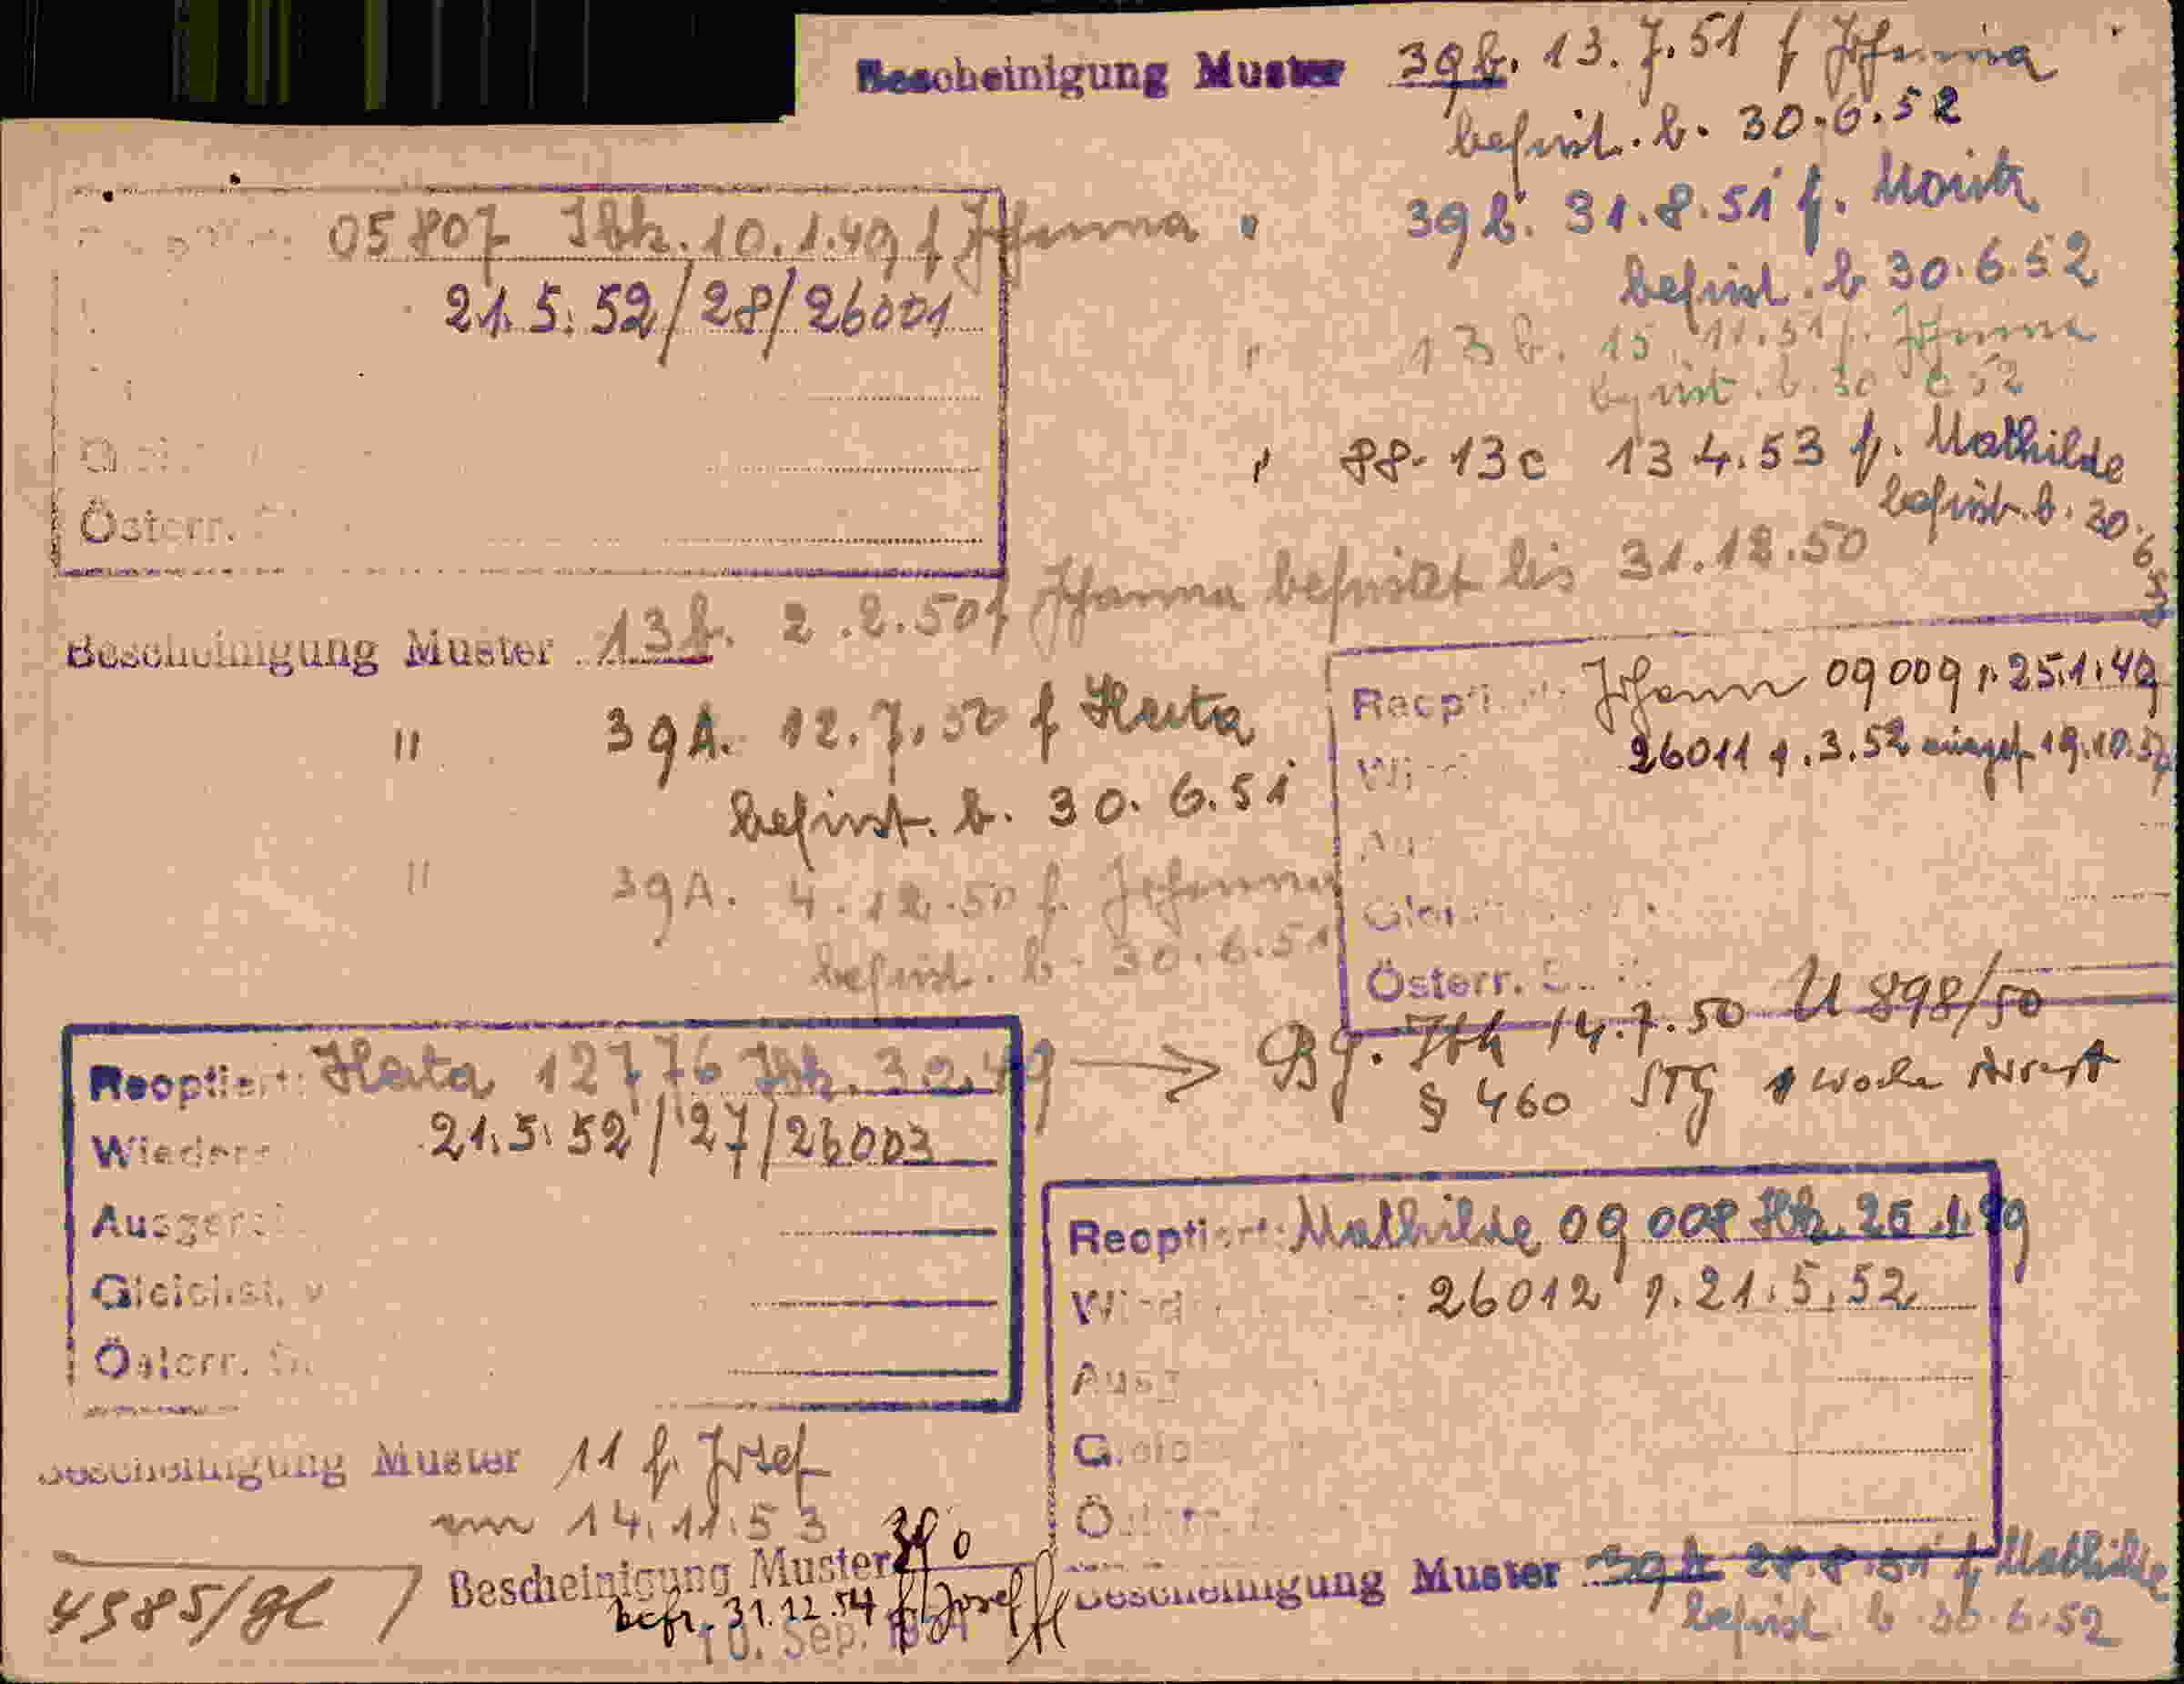 Bescheinigung Muster 39b. 13.7.51 f Johanna
befrist. b. 30.6.52
" 39b. 31.8.51 f. Moritz
befrist. b 30.6.52
" 13b. 15.11.51 f. Johanna
befrist. b. 30 6 52
" 88- 13c 13 4.53 f. Mathilde
befrist. b. 30.6.
05807 Ibk. 10.1.49 f Johanna
21.5.52/28/26001
Österr.
Bescheinigung Muster 13b. 2.2.50 f Johanna befristet bis 31.12.50
" 39A. 12.7.50 f Herta
befrist. b. 30.6.51
" 39A. 4.12.50 f. Johanna
befrist. b. 30.6.51
Reopti Johann 09009 v. 25.1.49
Wi 26011 v. .3.52 19.10.
Österr. S
Reoptiert: Herta 12776 Ibk. 49
Wieder 21.5.52/27/26003
Ausger
Gleichst. v
Österr. S
Bg. Ibk 14.7.50 U 898/50
§ 460 STG 1 Woche Arrest
Reoptiert: Mathilde 09008 Ibk. 25.1.49
Wied : 26012 v. 21.5.52
Ausg
Gleic
Ö
Bescheinigung Muster 11 f. Josef
am 14.11.53
Bescheinigung Muster
befr. 31.12.54 f Josef
10. Sep.
4985/gl
Bescheinigung Muster 39b 28.8.51 f. Mathilde
befrist. b. 30.6.52